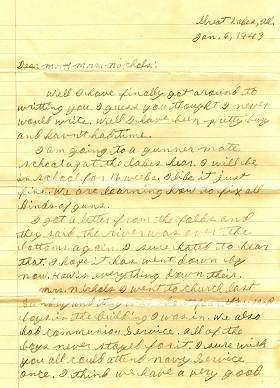 Great Lakes, Ill.
Jan. 6, 1943
Dear Mr. & Mrs. Nichols:
Well I have finally got around to
writting you. I guess you thought I never
would write. Well I have been pretty busy
and havn't had time.
I am going to a gunner mate
school at the lakes hear. I will be
in school for 16 weeks. I like it just
fine. We are learning how to fix all
kinds of guns.
I got a letter from the folks and
they said the river was over the
bottoms again. I sure hated to hear
that. I hope it has went down by
now. How is everything down their.
Mrs. Nichols I went to church last
Sunday and they
boys in the building I was in. We also
had communion Service. All of the
boys never stayed for it. I sure wish
you all could attend navy Service
once. I think we have a very good